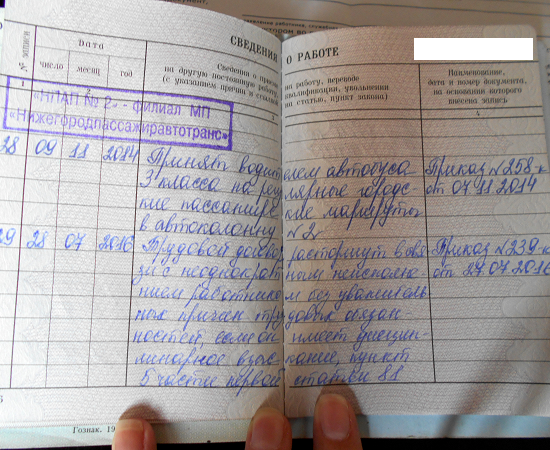 СВЕДЕНИЯ О РАБОТЕ
№ записи
Дата
число месяц год
Сведения о приеме на работу, переводе
на другую постоянную работу, квалификации, увольнении
(с указанием причин и ссылкой на статью, пункт закона)
Наименование,
дата и номер документа,
на основании которого
внесена запись
1
4
НПАП № 2 - филиал МП
«Нижегородпассажиравтотранс»
28 09 11 2014 Принят водителем автобуса Приказ №258-к
3 класса на регулярные городс- от 07 11 2014
кие пассажирские маршруты
в автоколонну №2
29 28 07 2016 Трудовой договор расторгнут в свя- Приказ №239-к
зи с неоднократным неисполне- от 27.07.2016
нием работником без уважитель-
ных причин трудовых обязан-
ностей, если он имеет дисцип-
линарное взыскание, пункт
5 части первой статьи 81
Гознак. 19